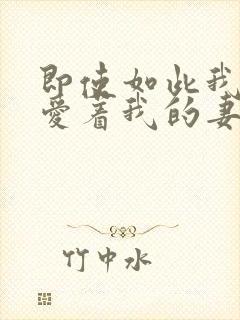 即使如此我
爱着我的妻
竹中水